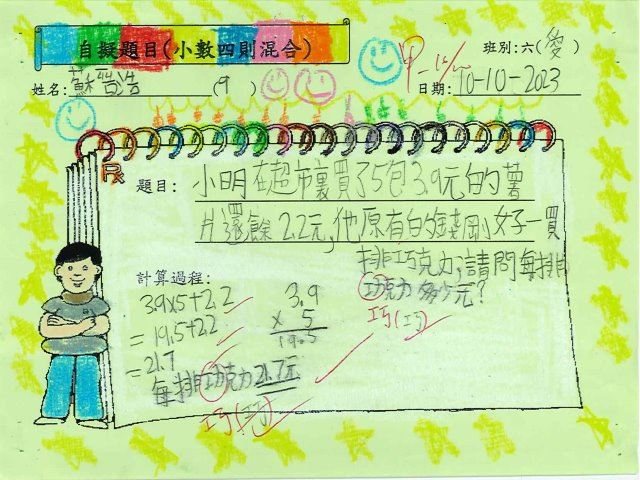 自擬題目(小數四則混合)
班別:六(愛)
姓名:蘇
(9
日期:10-10-2023
題目:小明在超市裏買了5包3.9元的薯
片還餘2.2元,他原有的錢剛好一買
排巧克力,請問每排
功克力多少元?
巧(巧)
計算過程:
3.9x5+2.2
=19.5+2.2
=21.7
3.9
x 5
19.5
每排功克力21.7元
巧(巧)